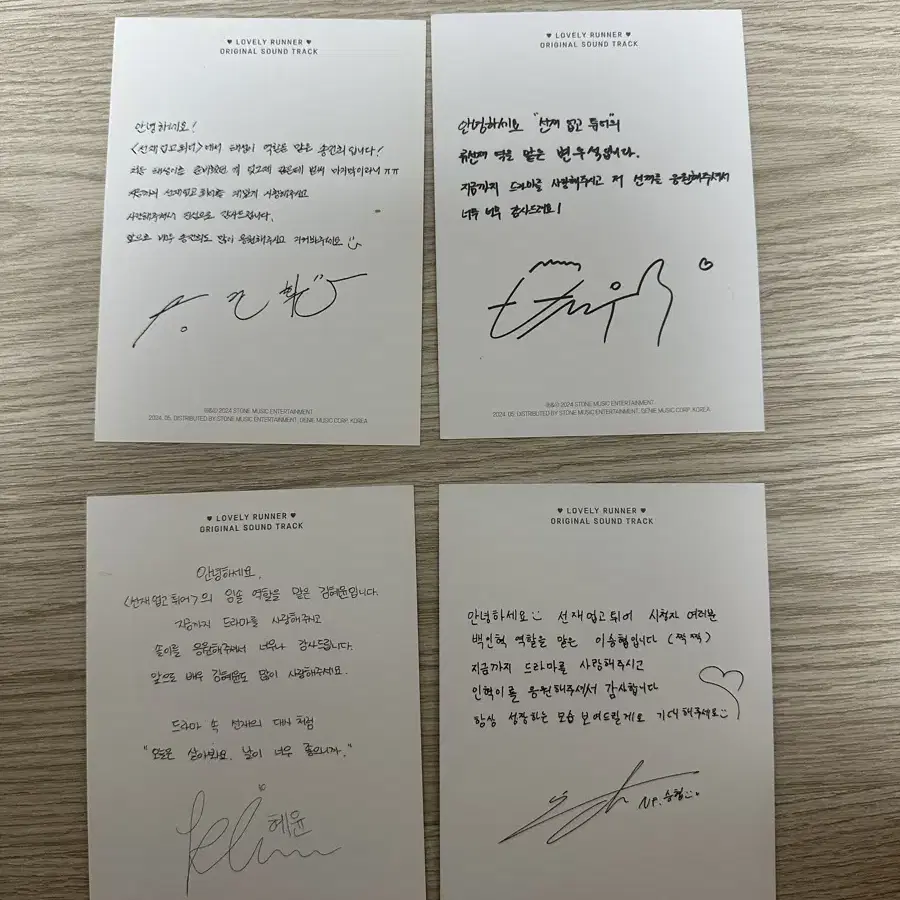 ♥ LOVELY RUNNER ♥
ORIGINAL SOUND TRACK
안녕하세요!
<선재업고튀어>에서 태성이 역할을 맡은 송건희입니다!
처음 태성이를 준비했던 게 엊그제 같은데 벌써 마지막이라니 ㅠㅠ
지금까지 선재업고튀어를 재밌게 시청해주시고
사랑해주셔서 진심으로 감사드립니다.
앞으로 배우 송건희도 많이 응원해주시고 지켜봐주세요
℗&© 2024 STONE MUSIC ENTERTAINMENT.
2024. 05. DISTRIBUTED BY STONE MUSIC ENTERTAINMENT, GENIE MUSIC CORP. KOREA
♥ LOVELY RUNNER ♥
ORIGINAL SOUND TRACK
안녕하세요 "선재 업고 튀어"의
류선재 역을 맡은 변우석입니다.
지금까지 드라마를 사랑해주시고 저 선재를 응원해주셔서
너무 너무 감사드려요!
℗&© 2024 STONE MUSIC ENTERTAINMENT.
2024. 05. DISTRIBUTED BY STONE MUSIC ENTERTAINMENT, GENIE MUSIC CORP. KOREA
♥ LOVELY RUNNER ♥
ORIGINAL SOUND TRACK
안녕하세요.
<선재업고튀어>의 임솔 역할을 맡은 김혜윤입니다.
지금까지 드라마를 사랑해주시고
솔이를 응원해주셔서 너무나 감사드립니다.
앞으로 배우 김혜윤도 많이 사랑해주세요.
드라마 속 선재의 대사처럼
"오늘은 살아봐요. 날이 너무 좋으니까."
혜윤
♥ LOVELY RUNNER ♥
ORIGINAL SOUND TRACK
안녕하세요 선재업고튀어 시청자 여러분
백인혁 역할을 맡은 이승협입니다 (짝짝)
지금까지 드라마를 사랑해주시고
인혁이를 응원해주셔서 감사합니다
항상 성장하는 모습 보여드릴게요 기대해주세요
N.F. 승협